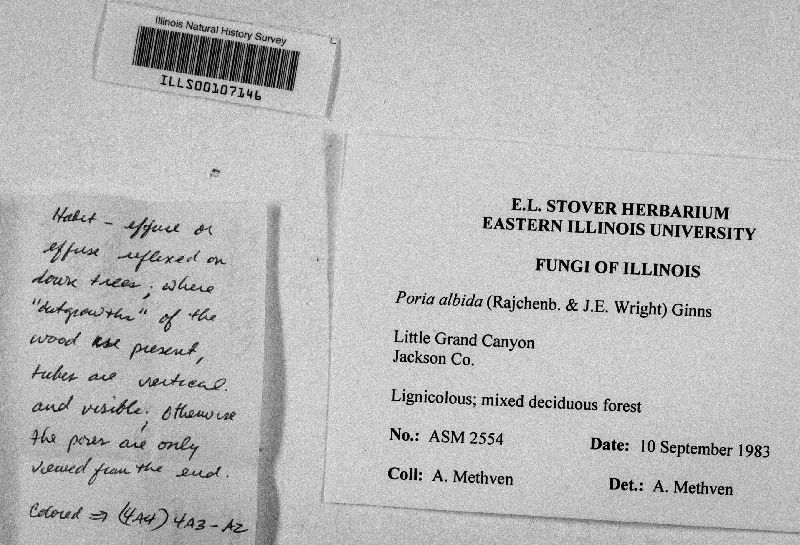 Illinois Natural History Survey
ILLS00107146
Habit - effuse or
effuse reflexed on
down trees; where
"outgrowths" of the
wood are present,
tubes are vertical
and visible; otherwise
the pores are only
viewed from the end.
Colored ⇒ (4A4) 4A3-A2
E.L. STOVER HERBARIUM
EASTERN ILLINOIS UNIVERSITY
FUNGI OF ILLINOIS
Poria albida (Rajchenb. & J.E. Wright) Ginns
Little Grand Canyon
Jackson Co.
Lignicolous; mixed deciduous forest
No.: ASM 2554 Date: 10 September 1983
Coll: A. Methven Det.: A. Methven